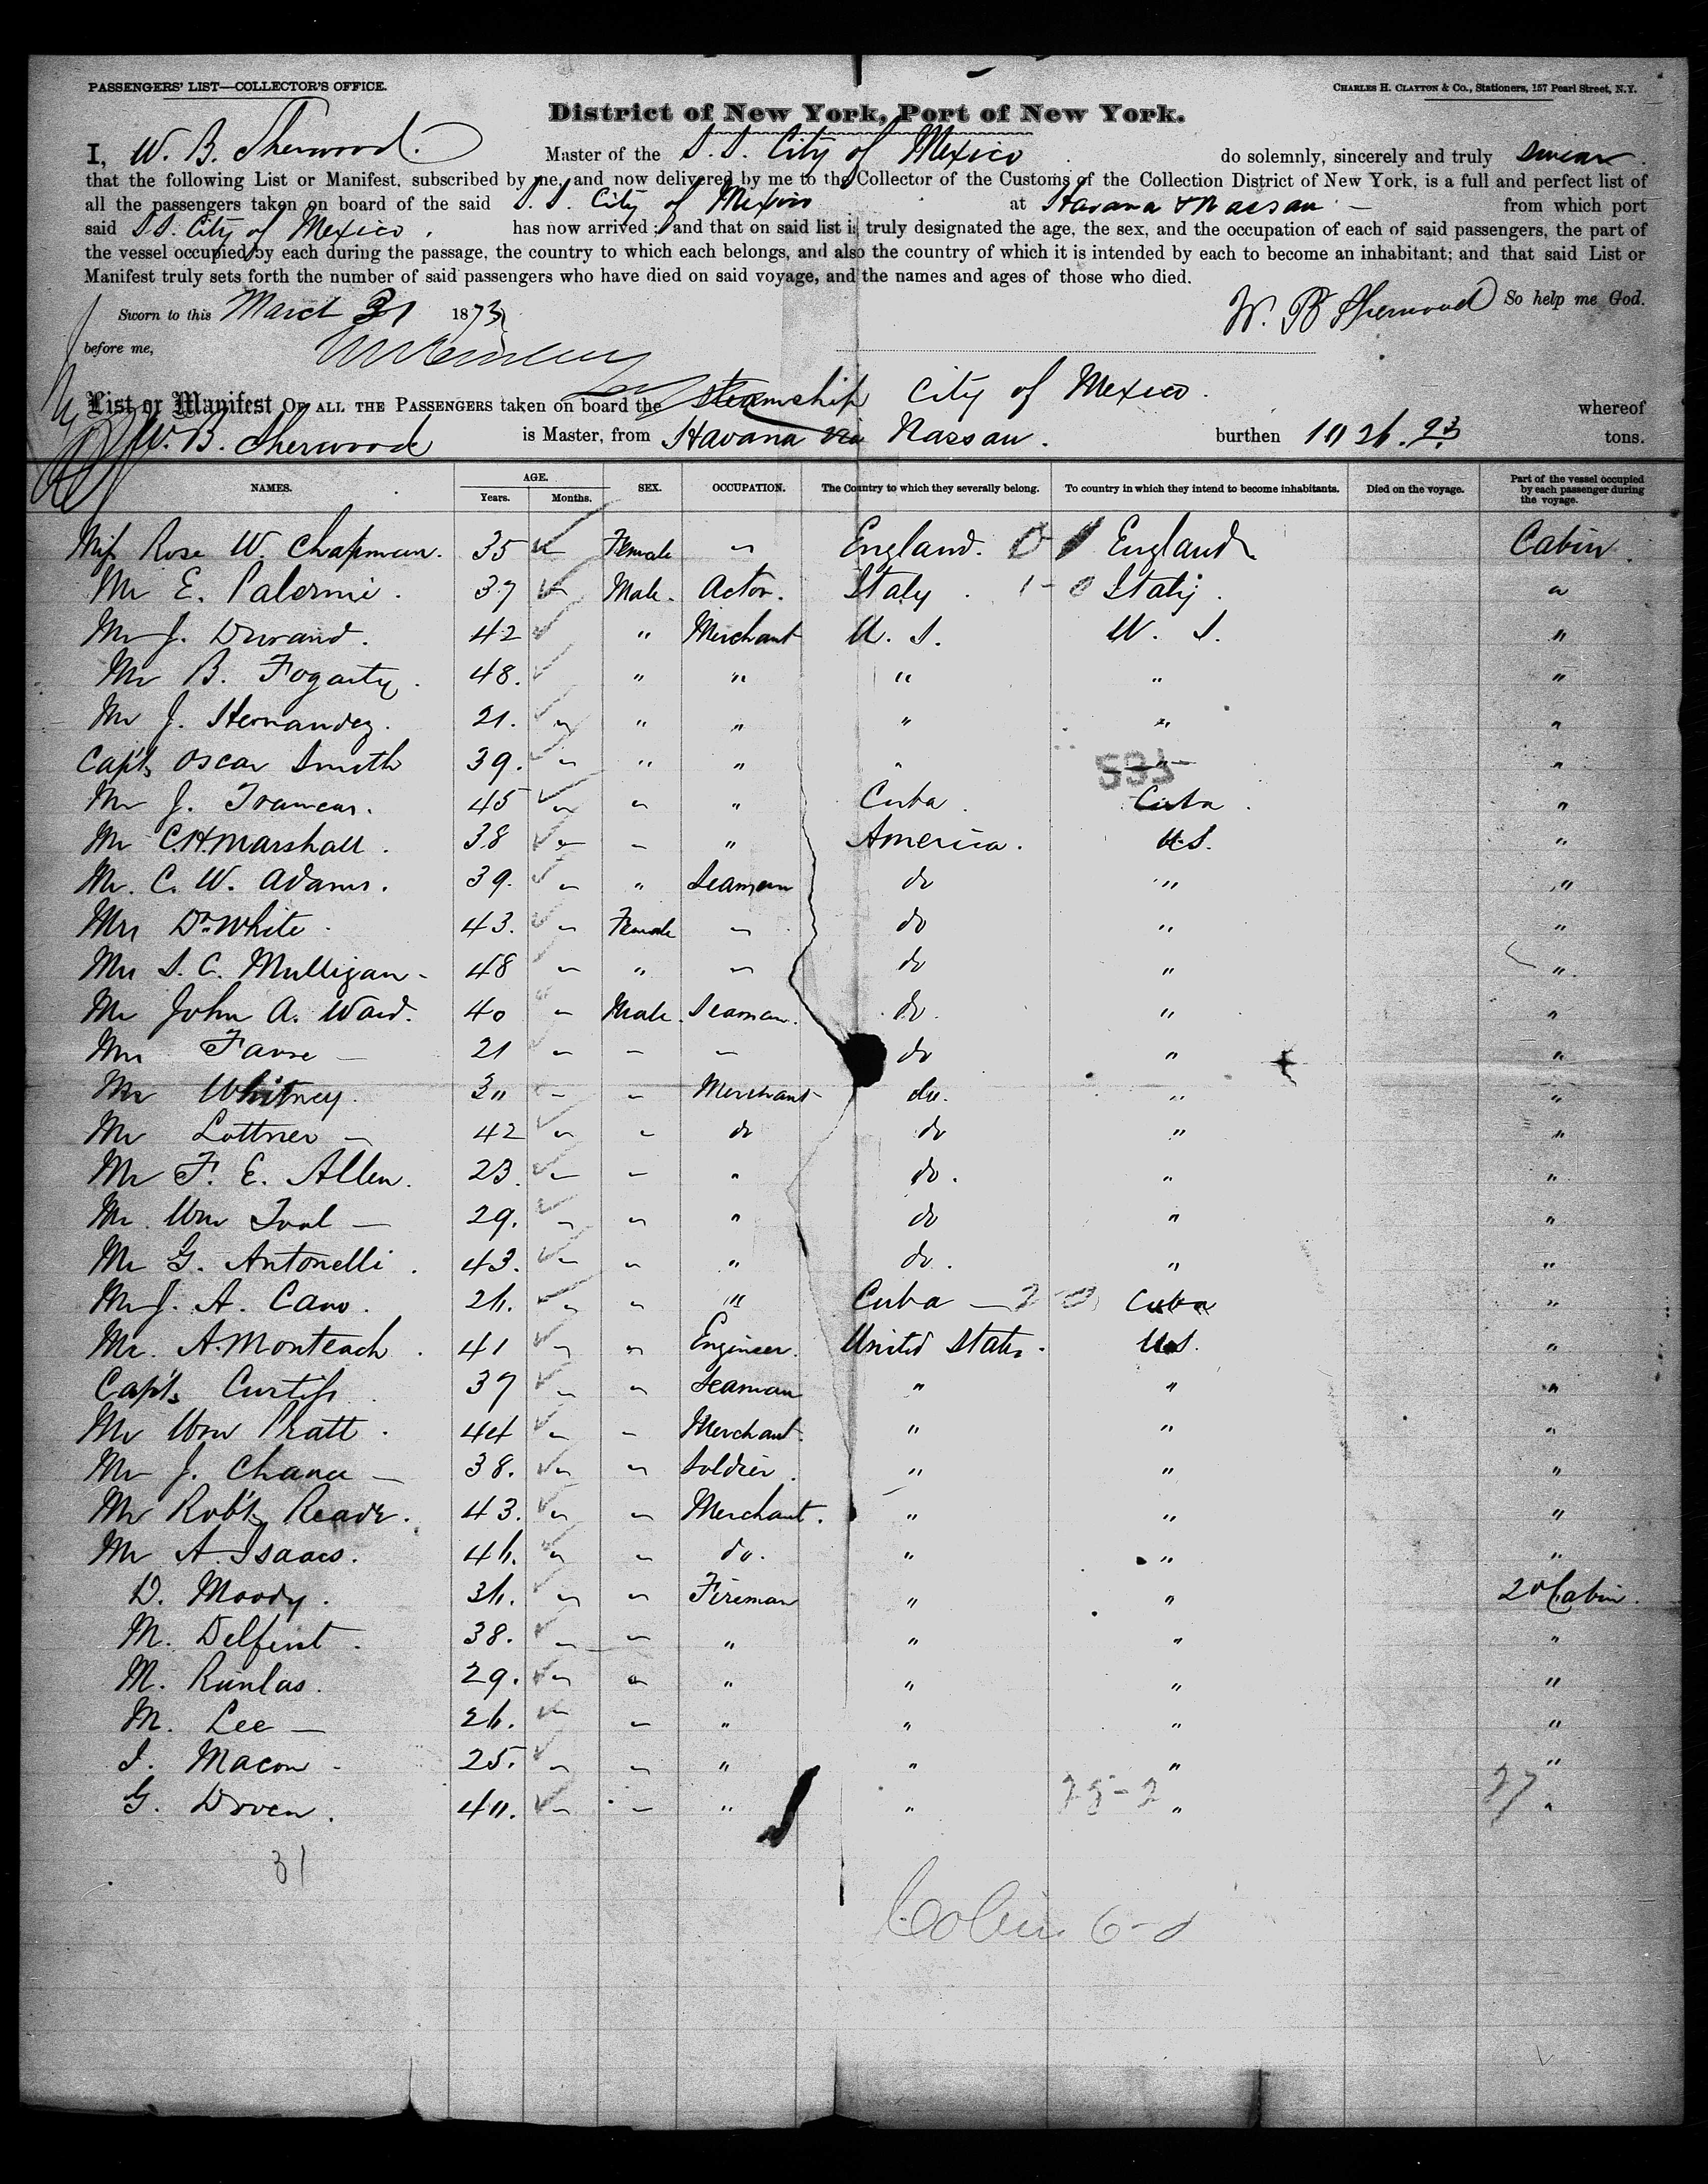 PASSENGERS' LIST—COLLECTOR'S OFFICE.
CHARLES H. CLAYTON & Co., Stationers, 157 Pearl Street, N.Y.
District of New York, Port of New York.
I, W. B. Sherwood. Master of the S. S. City of Mexico do solemnly, sincerely and truly swear
that the following List or Manifest, subscribed by me, and now delivered by me to the Collector of the Customs of the Collection District of New York, is a full and perfect list of
all the passengers taken on board of the said S. S. City of Mexico at Havana & Nassau from which port
said S S. City of Mexico. has now arrived; and that on said list is truly designated the age, the sex, and the occupation of each of said passengers, the part of
the vessel occupied by each during the passage, the country to which each belongs, and also the country of which it is intended by each to become an inhabitant; and that said List or
Manifest truly sets forth the number of said passengers who have died on said voyage, and the names and ages of those who died.
So help me God.
Sworn to this March 31 1873
W. B Sherwood
before me,
List or Manifest OF ALL THE PASSENGERS taken on board the Steamship City of Mexico. whereof
W. B. Sherwood is Master, from Havana via Nassau. burthen 1026.93 tons.
NAMES. AGE. Years. Months. SEX. OCCUPATION. The Country to which they severally belong. To country in which they intend to become inhabitants. Died on the voyage. Part of the vessel occupied by each passenger during the voyage.
Miss Rose W. Chapman. 35 " Female " England. England Cabin
Mr E. Palermi. 37 " Male. Actor. Italy. 1-0 Italy. "
Mr J. Durand. 42 " Merchant U. S. U. S. "
Mr B. Fogarty. 48. " " " " "
Mr J. Hernandez. 21. " " " " " "
Capt. Oscar Smith 39. " " " " " "
533
Mr J. 45 " " " Cuba. Cuba. "
Mr C.H. Marshall. 38 " " " America. U.S. "
Mr. C. W. Adams. 39. " " Seaman do " "
Mrs Dr White. 43. " Female " do " "
Mrs S. C. Mulligan- 48 " " " do " "
Mr John A. Ward. 40 " Male. Seaman. do. " "
21 " " " do " "
Mr Whitney. 30 " " Merchant do. " "
Mr Lottner 42 " " do do " "
Mr F. E. Allen. 23. " " " do. " "
Mr. Wm Toal 29. " " " do " "
Mr G. Antonelli. 43. " " " do. " "
Mr J. A. Cano. 26. " " " Cuba 2-0 Cuba "
Mr. A. Monteach. 41 " " Engineer. United States. U.S. "
Capt. Curtiss 37 " " Seaman " " "
Mr Wm Pratt. 44 " " Merchant. " " "
Mr J. Chance 38. " " Soldier. " " "
Mr Robt. Reade. 43. " " Merchant. " " "
Mr A. Isaacs. 46. " " do. " " "
D. Moody. 36. " " Fireman " " 2d Cabin.
M. Delfint. 38. " " " " " "
M. Runlas. 29. " " " " " "
M. Lee 26. " " " " " "
I. Macon 25. " " " " " "
G. Doven. 40. " " " " 25-2 " 27 "
31
6-0